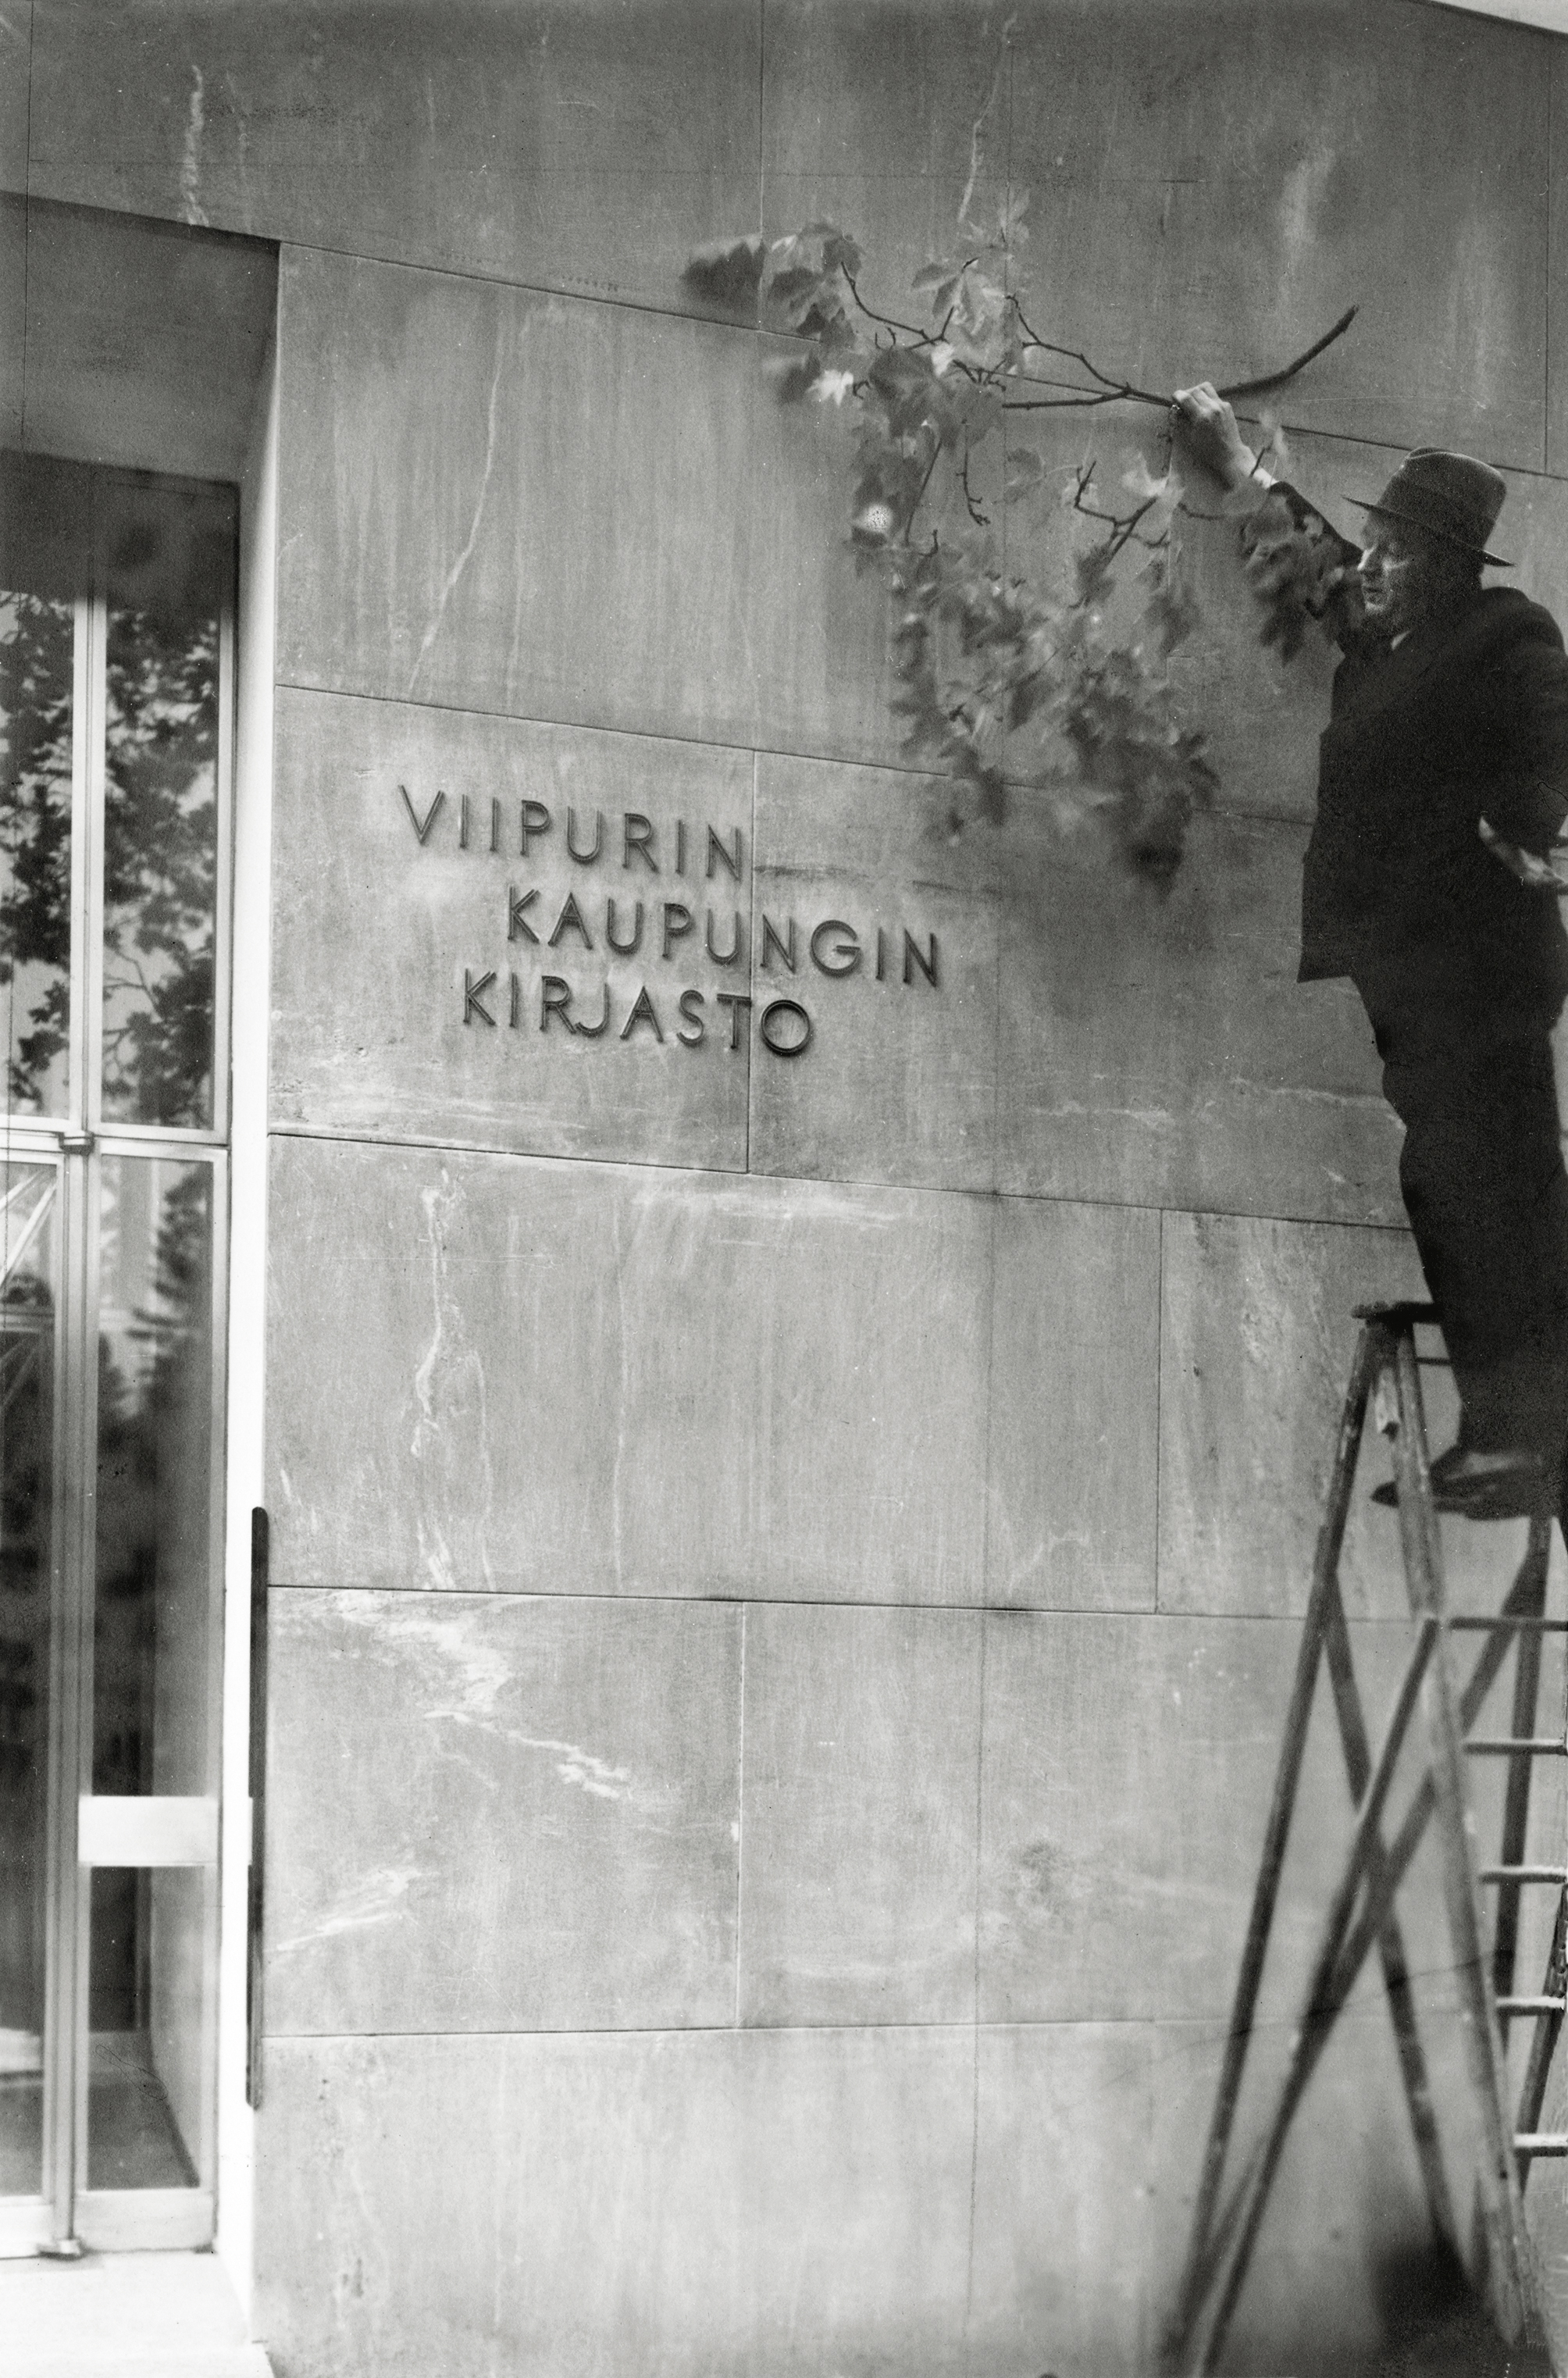 VIIPURIN
KAUPUNGIN
KIRJASTO